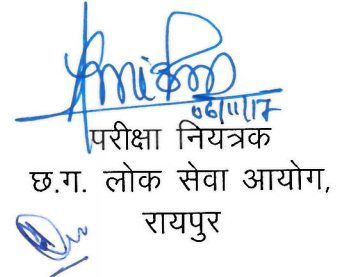 06/11/17
परीक्षा नियत्रक
छ.ग. लोक सेवा आयोग,
रायपुर